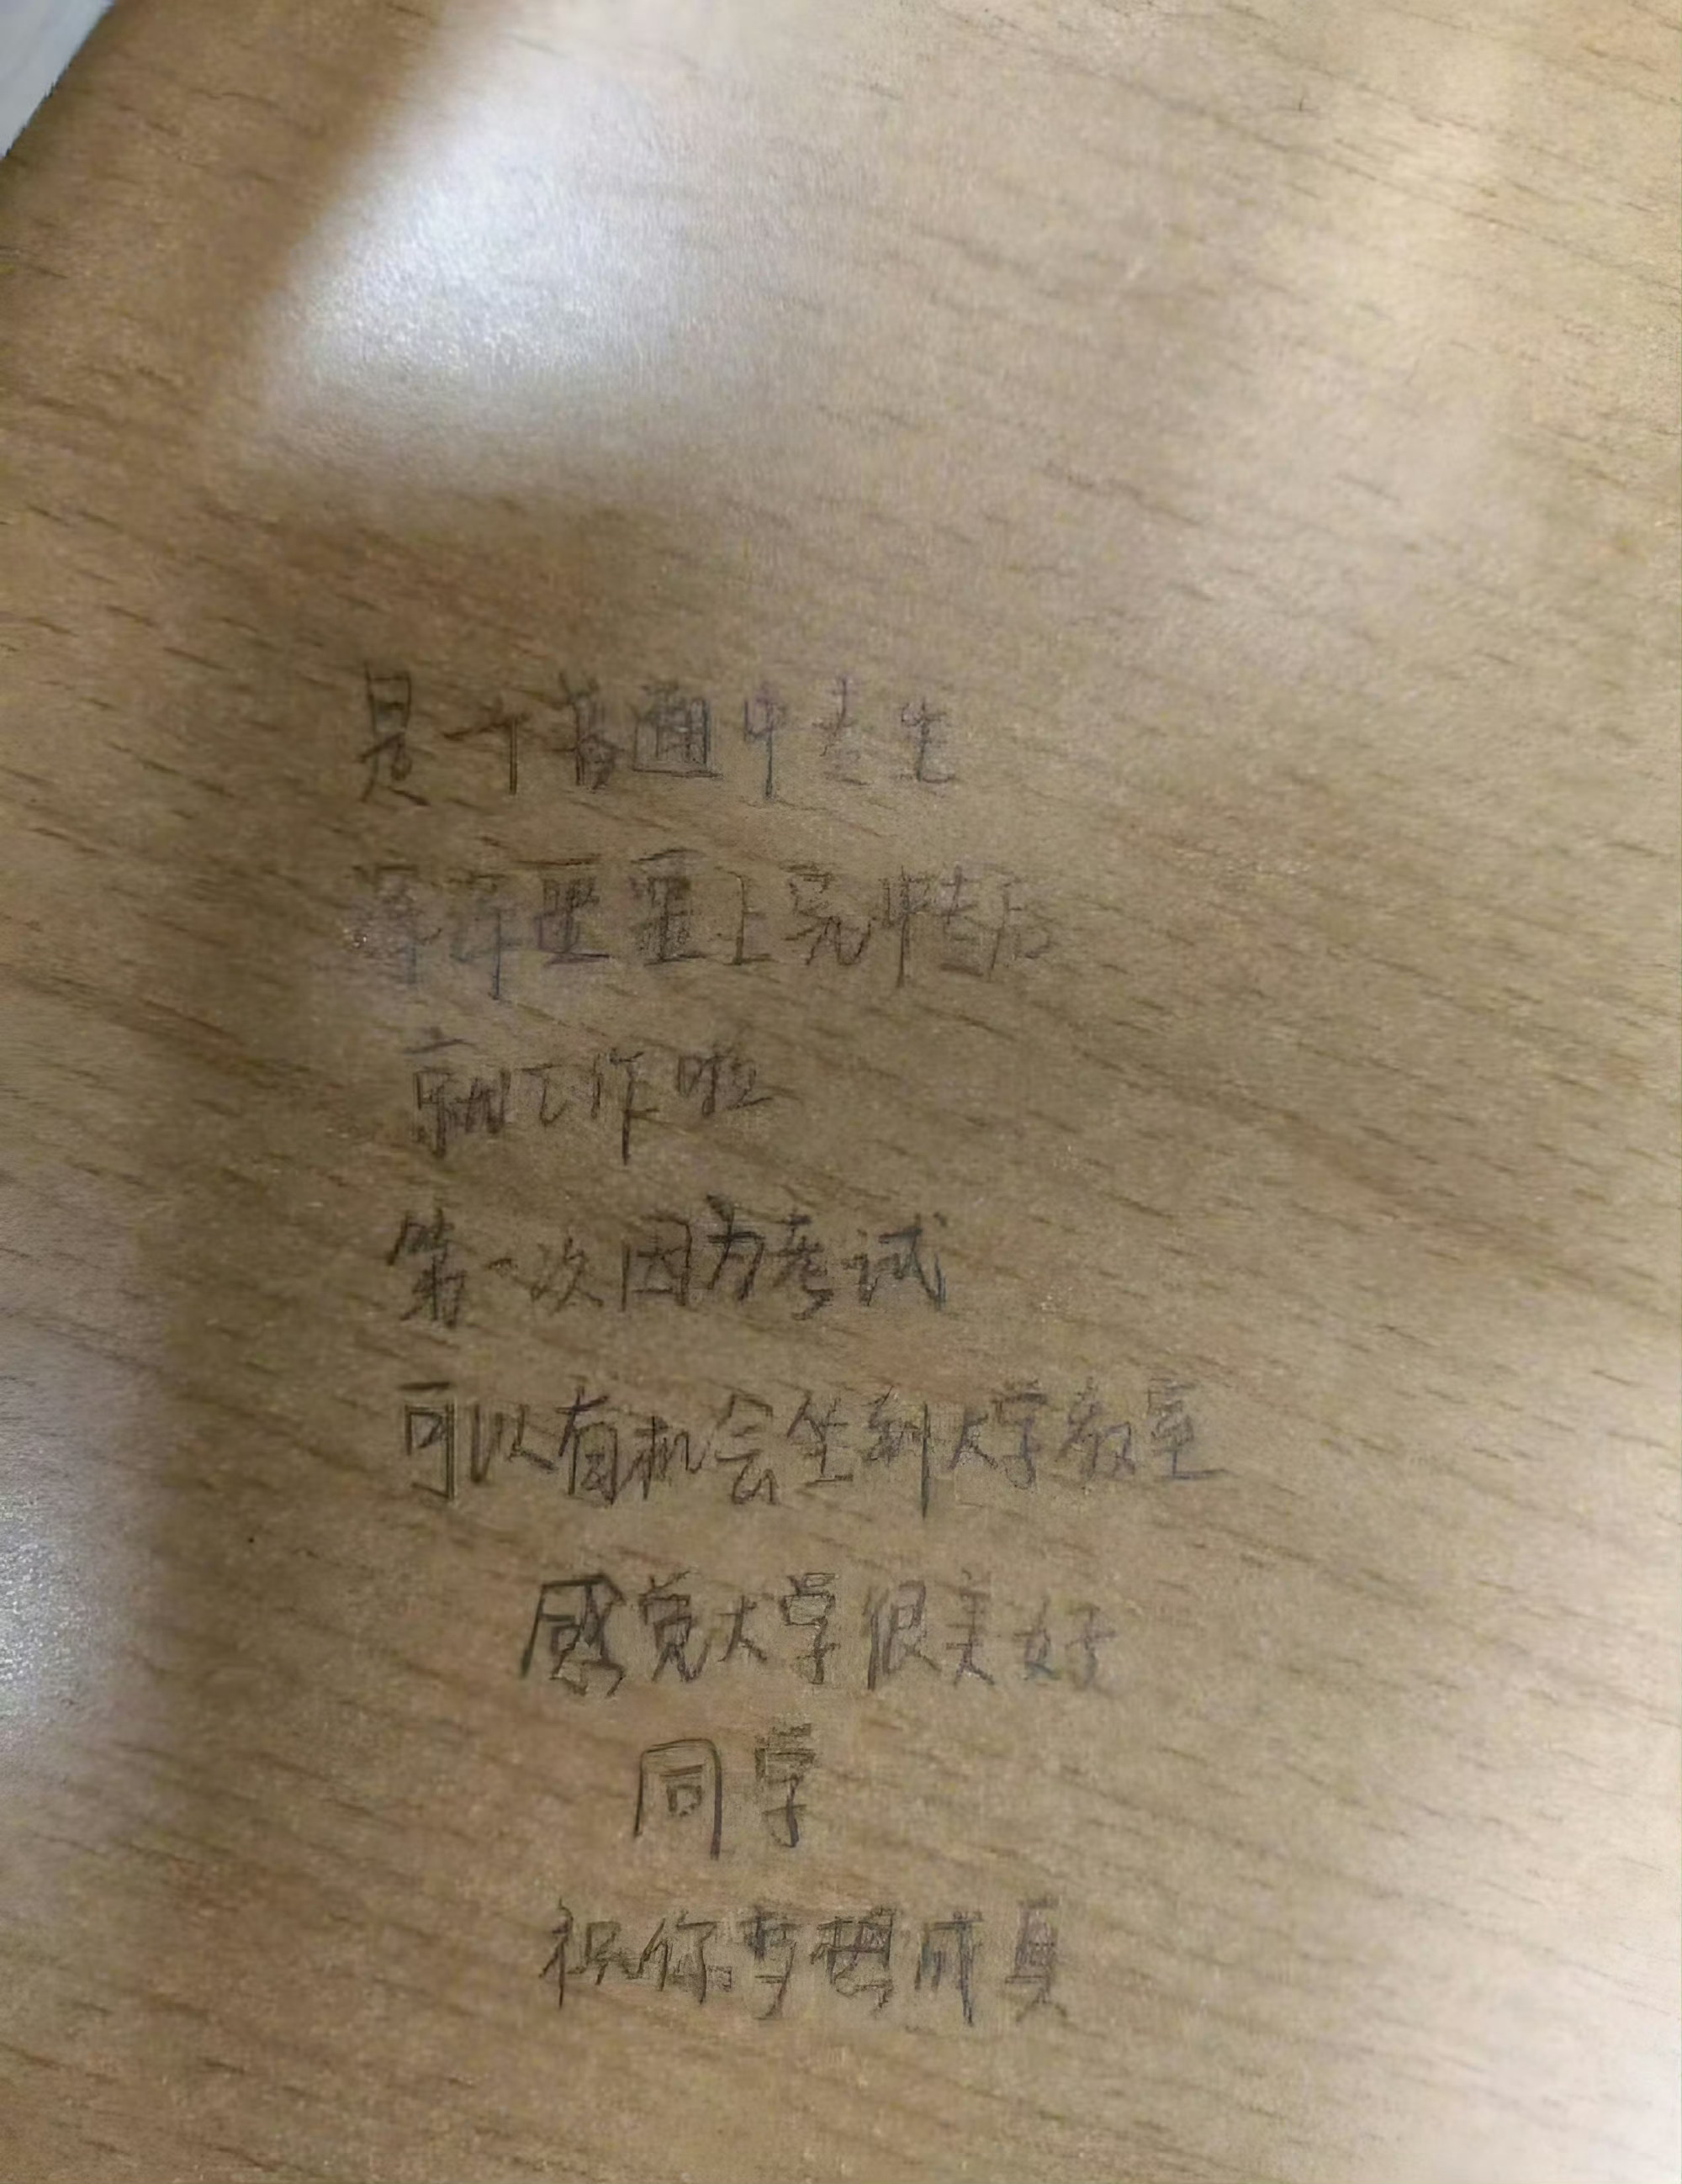 是个普通中专生
浑浑噩噩上完中专后
就工作啦
第一次因为考试
可以有机会坐到大学教室
感觉大学很美好
同学
祝你梦想成真